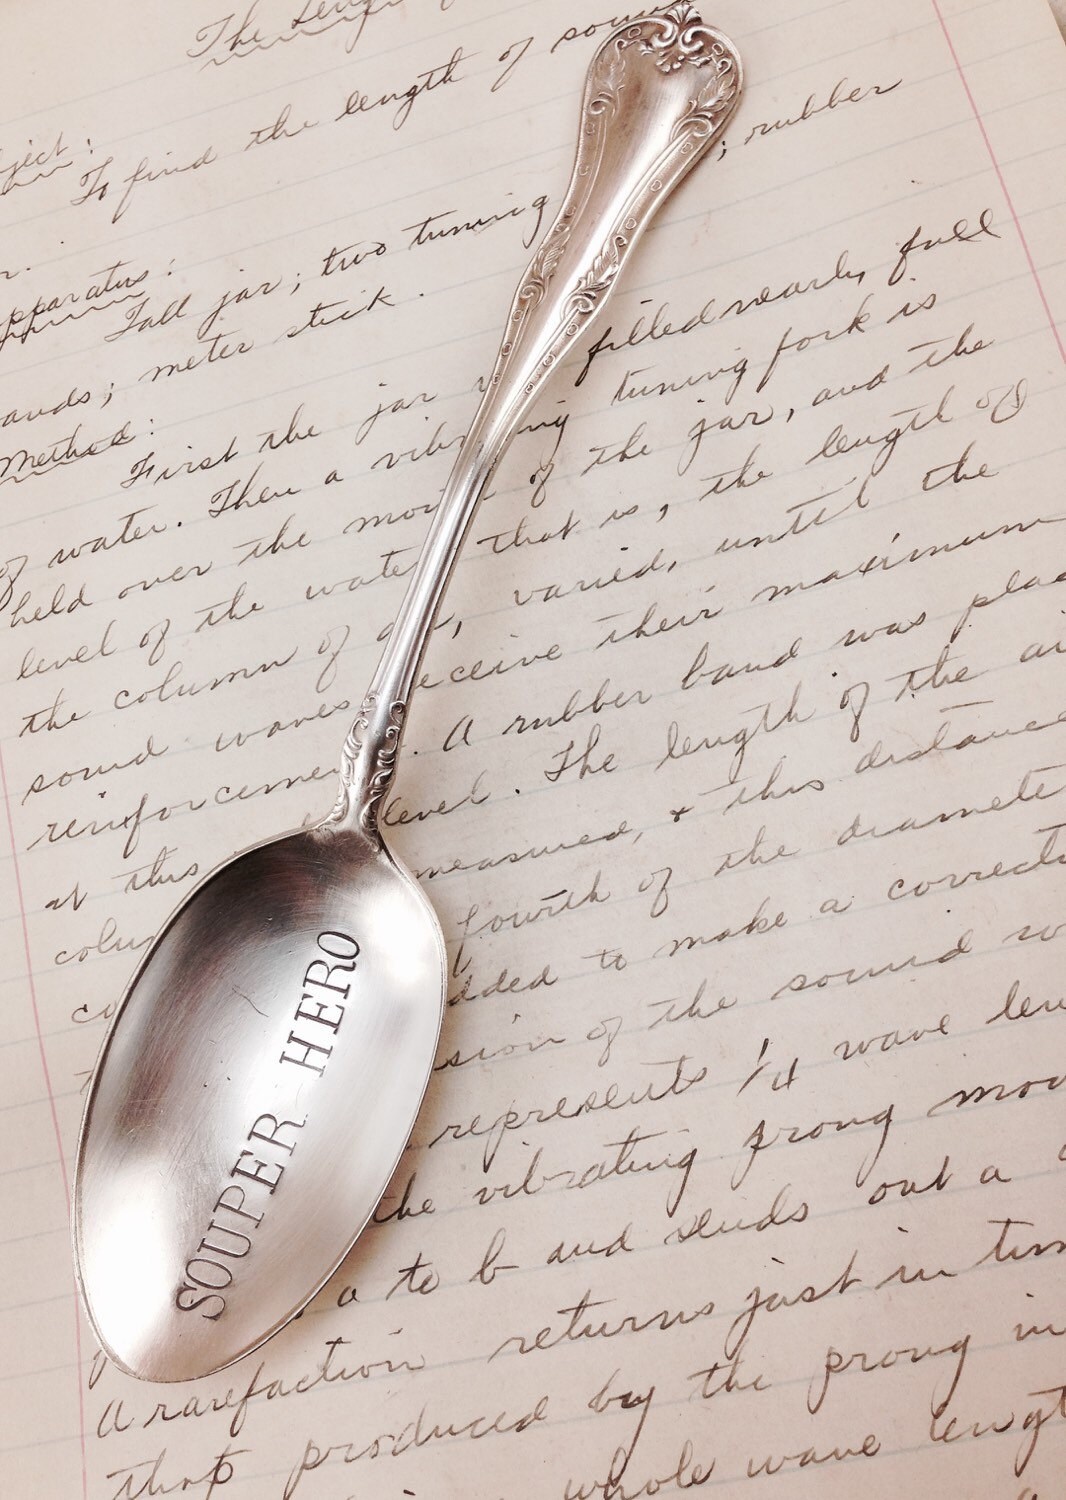 The Leng
ject:
To find the length of sound
r.
pparatus:
Tall jar; two tuning ; rubber
ands; meter stick.
Method:
First the jar filled nearly full
of water. Then a vib ng tuning fork is
held over the mou of the jar, and the
level of the wate that is, the length of
the column of a , varied, until the
sound waves eceive their maximum
reinforcemen . A rubber band was plac
at this level. The length of the ai
colu measured, & this distance
co fourth of the diamete
dded to make a correcti
sion of the sound w
represents 1/4 wave len
the vibrating prong mov
a to b and sends out a
A rarefaction returns just in tim
that produced by the prong in
whole wave lengt
SOUPER HERO